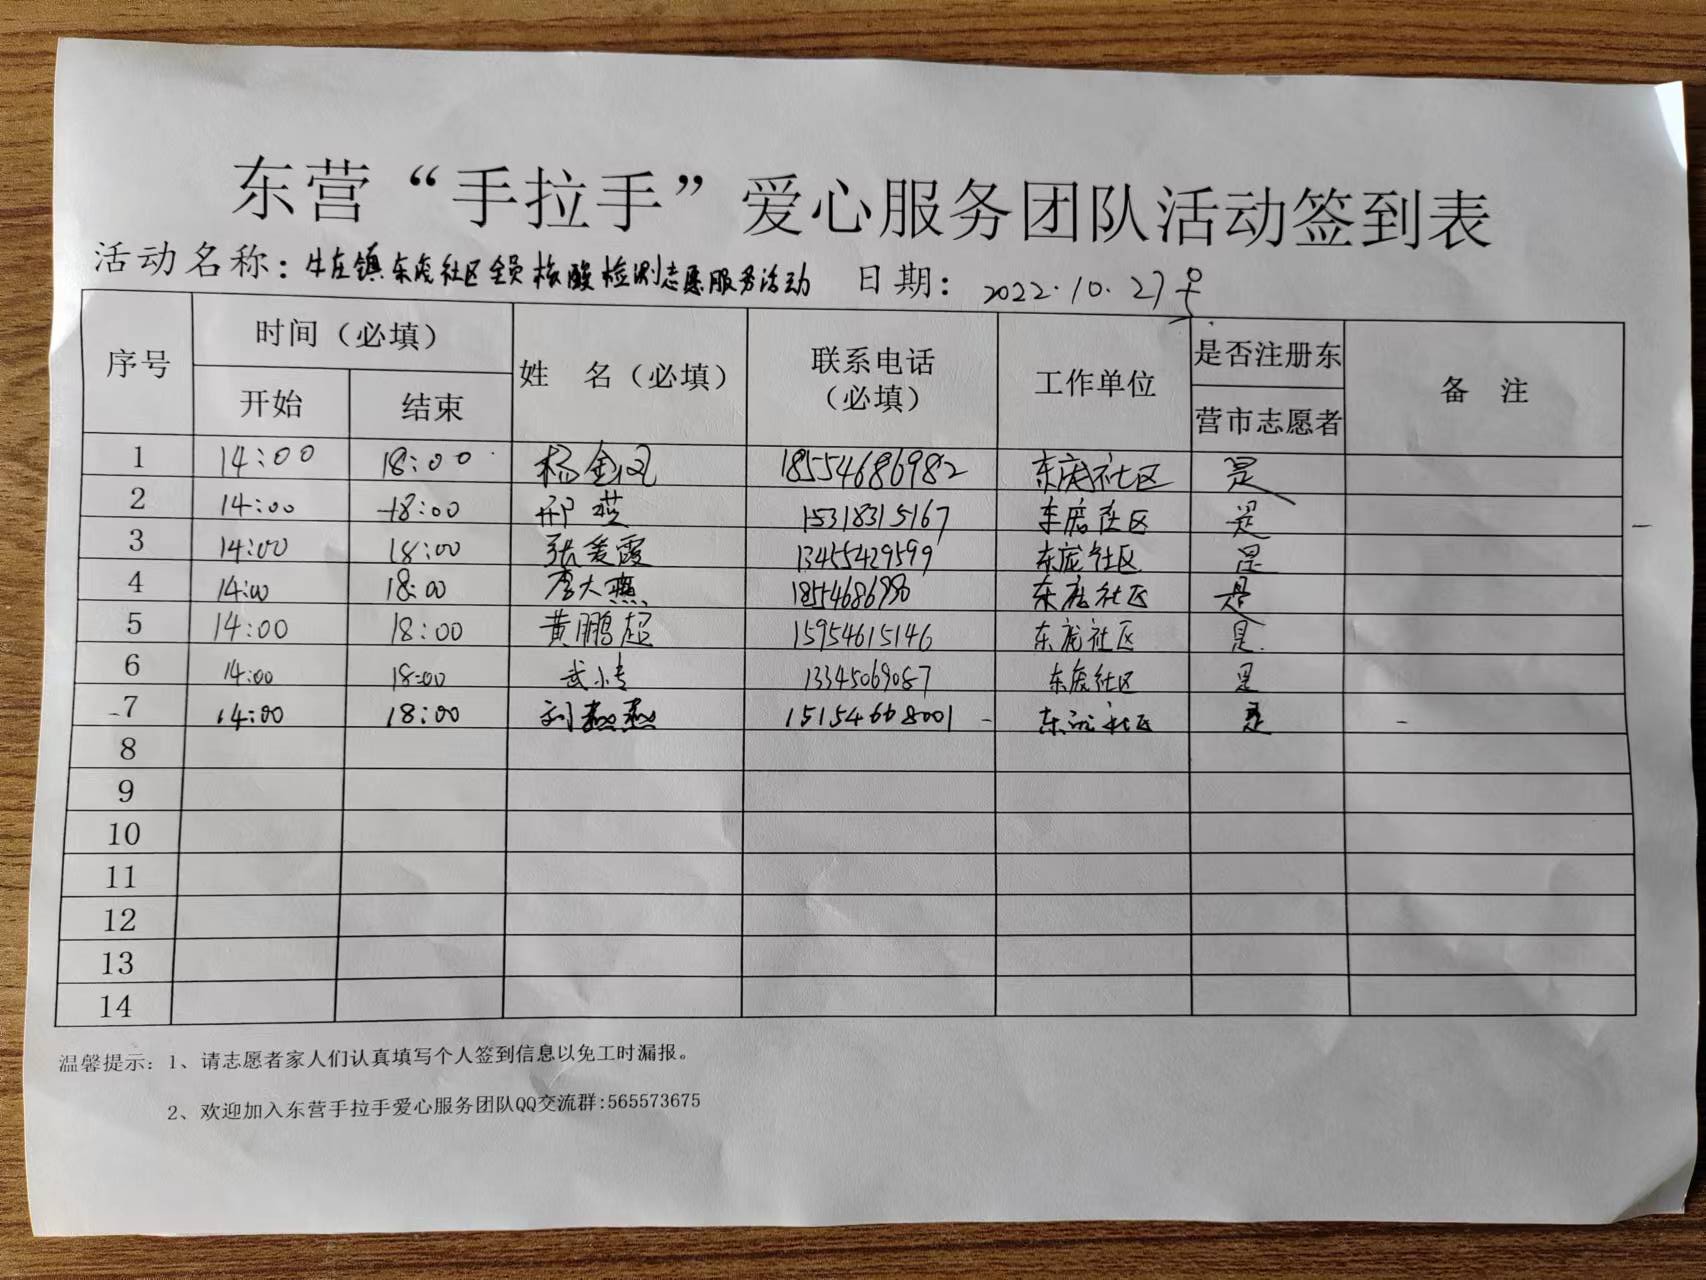 东营“手拉手”爱心服务团队活动签到表
活动名称：牛庄镇东庞社区全员核酸检测志愿服务活动 日期：2022.10.27号
序号 时间（必填） 姓 名（必填） 联系电话（必填） 工作单位 是否注册东营市志愿者 备 注
开始 结束
1 14:00 18:00 杨金凤 18554686982 东庞社区 是
2 14:00 18:00 邢燕 15318315167 东庞社区 是
3 14:00 18:00 张爱霞 13455429599 东庞社区 是
4 14:00 18:00 李大燕 东庞社区 是
5 14:00 18:00 黄鹏超 15954615146 东庞社区 是
6 14:00 18:00 武小专 13345069087 东庞社区 是
7 14:00 18:00 刘燕燕 15154668001 东庞社区 是
8
9
10
11
12
13
14
温馨提示：1、请志愿者家人们认真填写个人签到信息以免工时漏报。
2、欢迎加入东营手拉手爱心服务团队QQ交流群:565573675